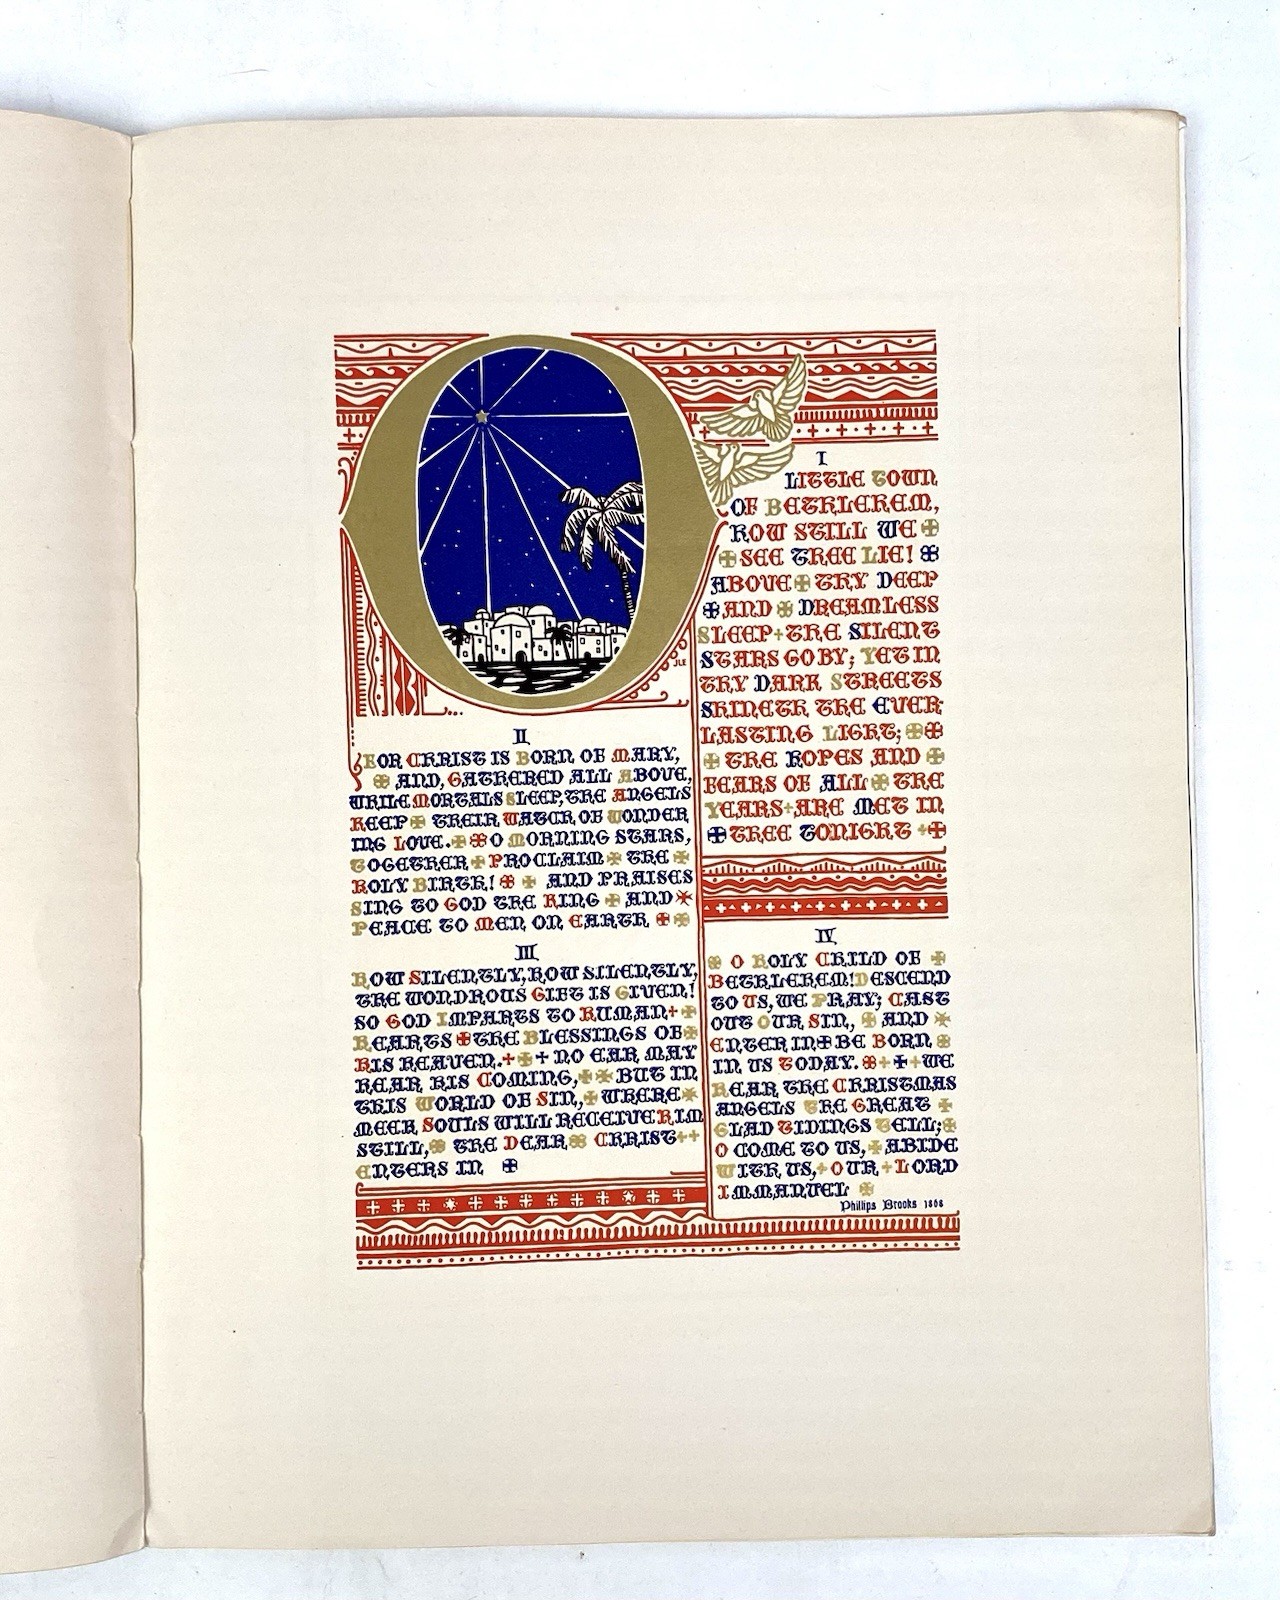 O
I
LITTLE TOWN
OF BETHLEHEM,
HOW STILL WE
SEE THEE LIE!
ABOVE THY DEEP
AND DREAMLESS
SLEEP THE SILENT
STARS GO BY; YET IN
THY DARK STREETS
SHINETH THE EVER-
LASTING LIGHT;
THE HOPES AND
FEARS OF ALL THE
YEARS ARE MET IN
THEE TONIGHT
JLE
II
FOR CHRIST IS BORN OF MARY,
AND, GATHERED ALL ABOVE,
WHILE MORTALS SLEEP, THE ANGELS
KEEP THEIR WATCH OF WONDER
ING LOVE. O MORNING STARS,
TOGETHER PROCLAIM THE
HOLY BIRTH! AND PRAISES
SING TO GOD THE KING AND
PEACE TO MEN ON EARTH
III
HOW SILENTLY, HOW SILENTLY,
THE WONDROUS GIFT IS GIVEN!
SO GOD IMPARTS TO HUMAN
HEARTS THE BLESSINGS OF
HIS HEAVEN. NO EAR MAY
HEAR HIS COMING, BUT IN
THIS WORLD OF SIN, WHERE
MEEK SOULS WILL RECEIVE HIM
STILL, THE DEAR CHRIST
ENTERS IN
IV
O HOLY CHILD OF
BETHLEHEM! DESCEND
TO US, WE PRAY; CAST
OUT OUR SIN, AND
ENTER IN BE BORN
IN US TODAY. WE
HEAR THE CHRISTMAS
ANGELS THE GREAT
GLAD TIDINGS TELL;
O COME TO US, ABIDE
WITH US, OUR LORD
IMMANUEL
Phillips Brooks 1868